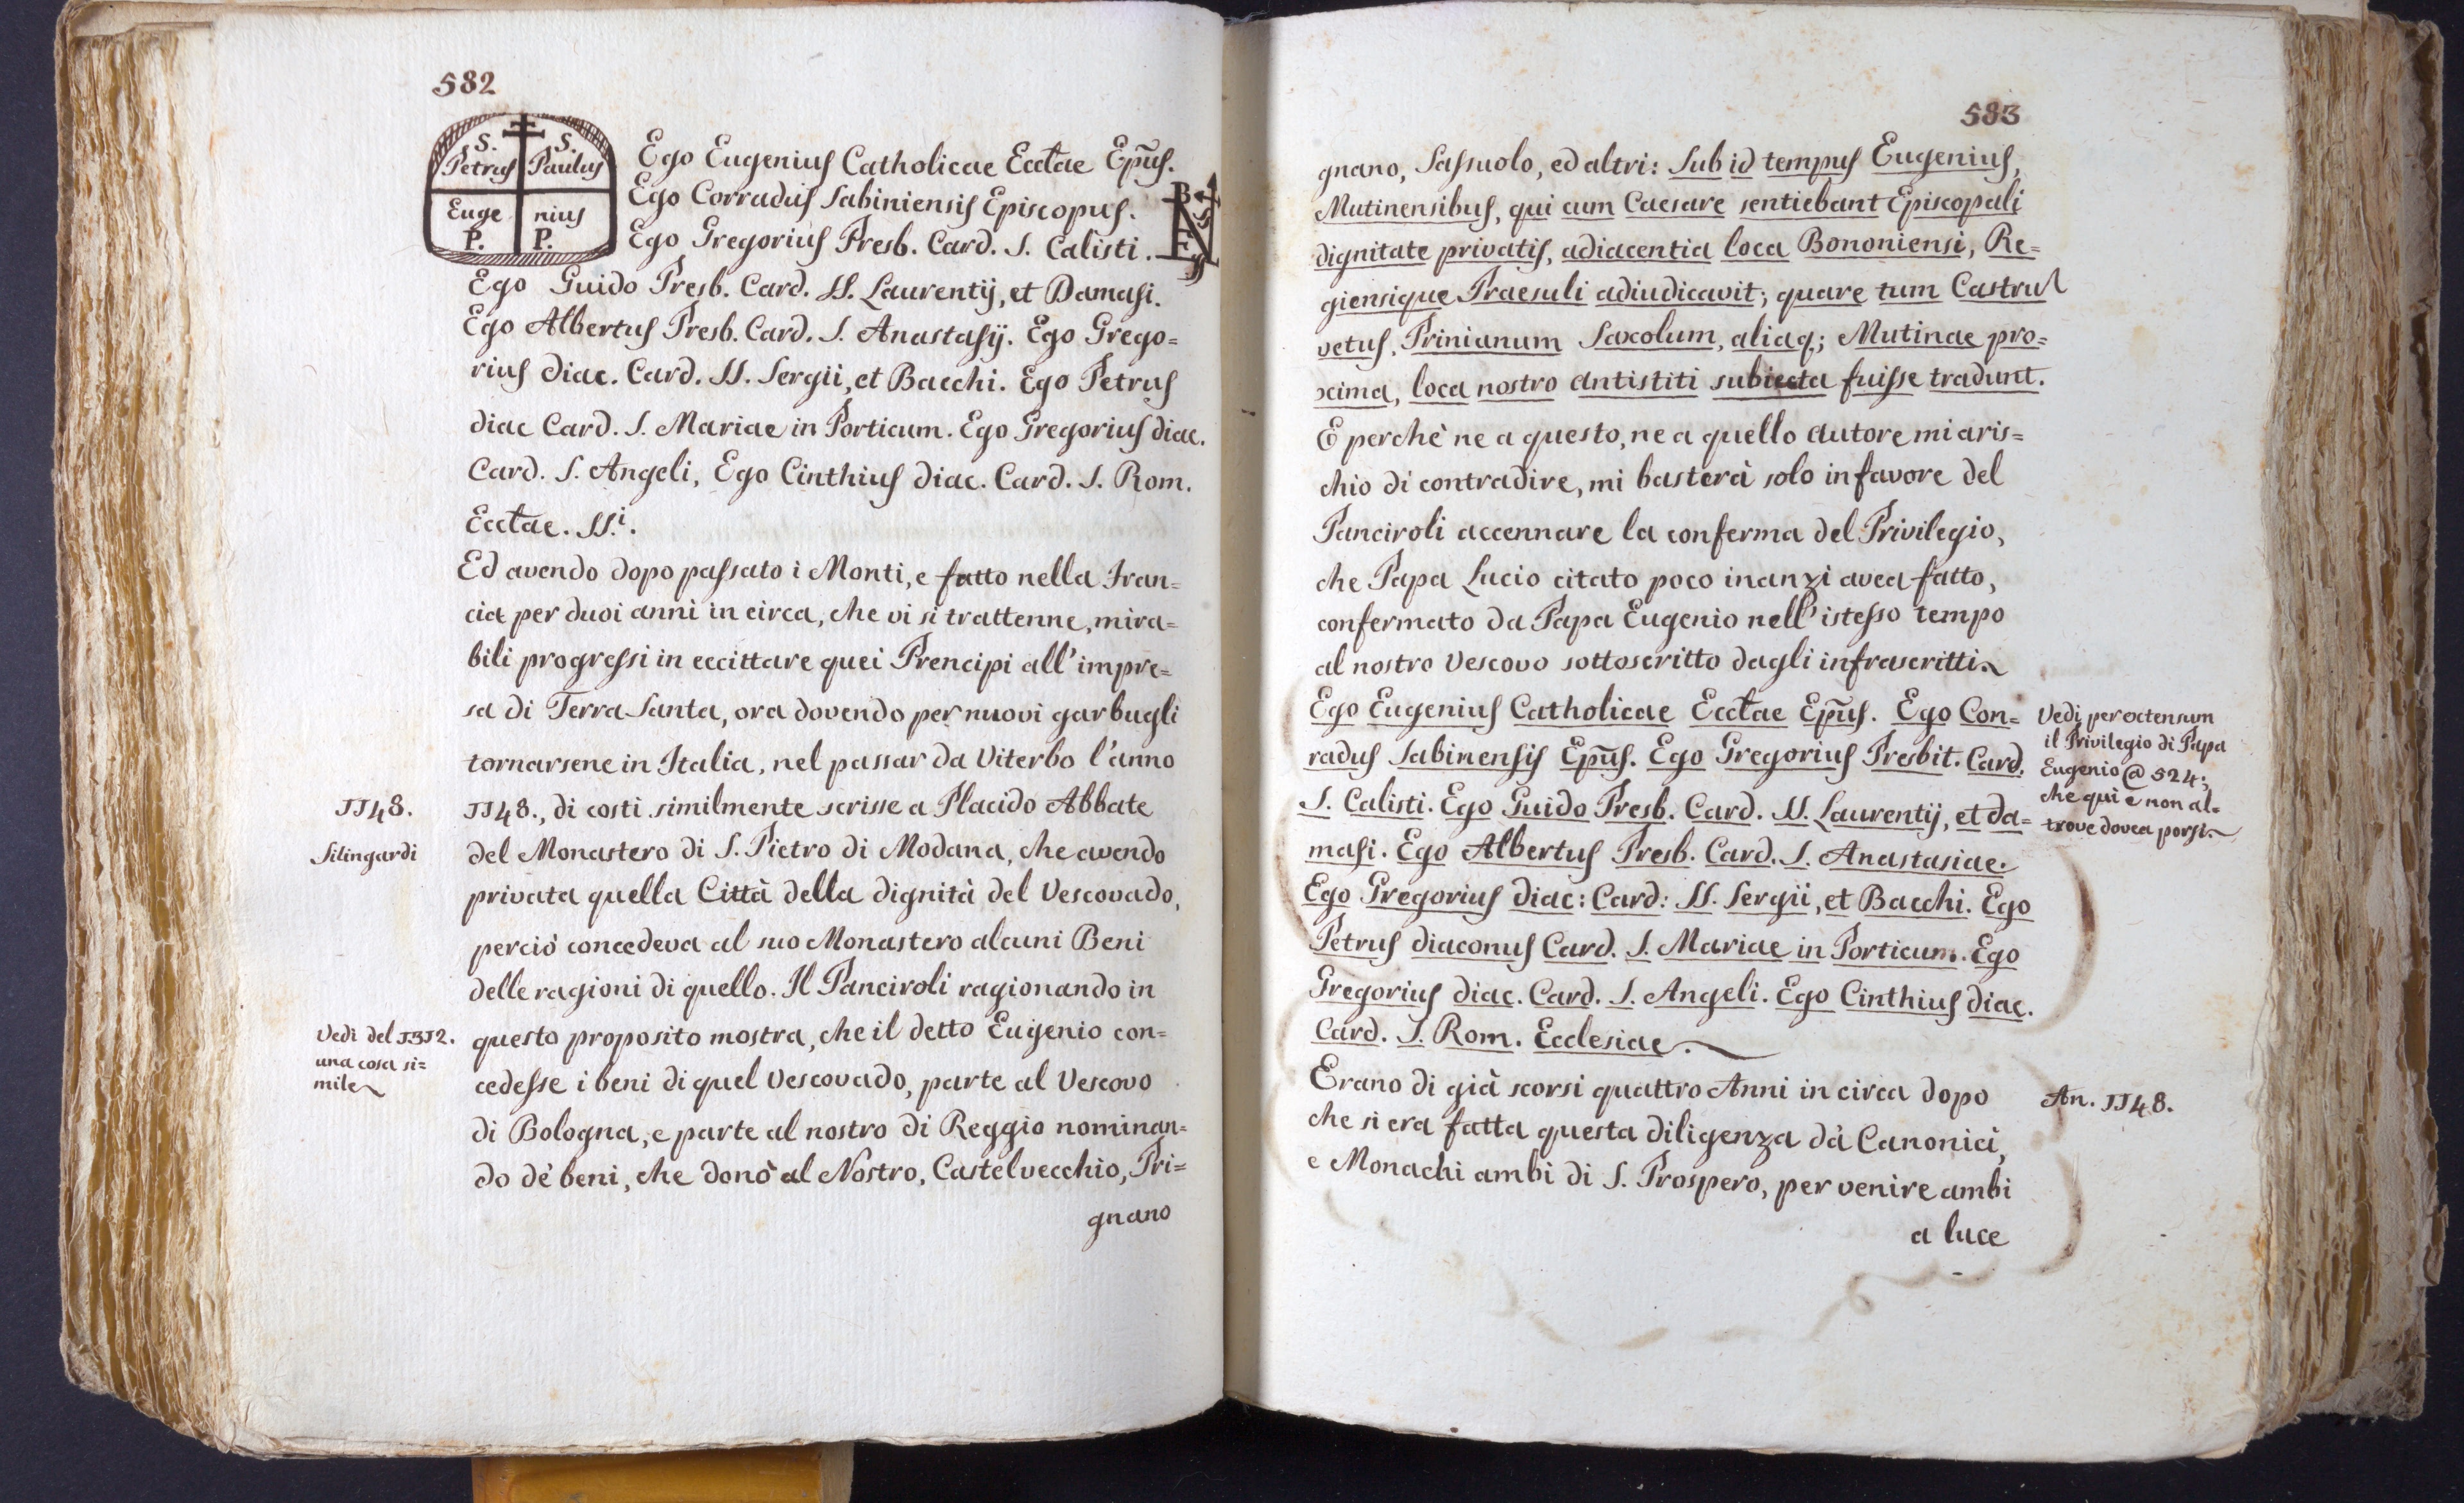 582
S. Petrus S. Paulus
Euge nius
P. P.
Ego Eugenius Catholicae Ecctae Epũs.
Ego Corradus Sabiniensis Episcopus.
Ego Gregorius Presb. Card. S. Calisti.
Ego Guido Presb. Card. SS. Laurentij, et Damasi.
Ego Albertus Presb. Card. S. Anastasij. Ego Grego=
rius diac. Card. SS. Sergii, et Bacchi. Ego Petrus
diac Card. S. Mariae in Porticum. Ego Gregorius diac.
Card. S. Angeli, Ego Cinthius diac. Card. S. Rom.
Ecctae. SS.i.
Ed avendo dopo passato i Monti, e fatto nella Fran=
cia per duoi anni in circa, che vi si trattenne, mira=
bili progressi in eccittare quei Prencipi all' impre=
sa di Terra Santa, ora dovendo per nuovi garbugli
tornarsene in Italia, nel passar da Viterbo l'anno
1148.
1148., di costi similmente scrisse a Placido Abbate
Silingardi
del Monastero di S. Pietro di Modana, che avendo
privata quella Città della dignità del Vescovado,
perciò concedeva al suo Monastero alcuni Beni
delle ragioni di quello. Il Panciroli ragionando in
Vedi del 1312.
una cosa si=
mile
questo proposito mostra, che il detto Eugenio con=
cedesse i beni di quel Vescovado, parte al Vescovo
di Bologna, e parte al nostro di Reggio nominan=
do de' beni, che donò al Nostro, Castelvecchio, Pri=
gnano
583
gnano, Sassuolo, ed altri: Sub id tempus Eugenius,
Mutinensibus, qui cum Caesare sentiebant Episcopali
dignitate privatis, adiacentia loca Bononiensi, Re=
giensique Praesuli adiudicavit; quare tum Castru
vetus, Prinianum Saxolum, aliaq; Mutinae pro=
xima, loca nostro antistiti subiecta fuisse tradunt.
E perchè ne a questo, ne a quello Autore mi aris=
chio di contradire, mi basterà solo in favore del
Panciroli accennare la conferma del Privilegio,
che Papa Lucio citato poco inanzi avea fatto,
confermato da Papa Eugenio nell' istesso tempo
al nostro Vescovo sottoscritto dagli infrascritti
Ego Eugenius Catholicae Ecctae Epũs. Ego Con=
radus Sabinensis Epũs. Ego Gregorius Presbit. Card.
S. Calisti. Ego Guido Presb. Card. SS. Laurentij, et da=
masi. Ego Albertus Presb. Card. S. Anastasiae.
Ego Gregorius diac: Card: SS. Sergii, et Bacchi. Ego
Petrus diaconus Card. S. Mariae in Porticum. Ego
Gregorius diac. Card. S. Angeli. Ego Cinthius diac.
Card. S. Rom. Ecclesiae.
Vedi per extensum
il Privilegio di Papa
Eugenio @ 524;
che qui e non al=
trove dovea porsi.
Erano di già scorsi quattro Anni in circa dopo
An. 1148.
che si era fatta questa diligenza dà Canonici,
e Monachi ambi di S. Prospero, per venire ambi
a luce